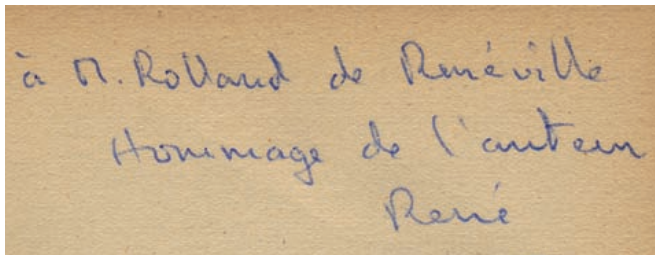 à M. Rolland de Renéville
Hommage de l'auteur
René